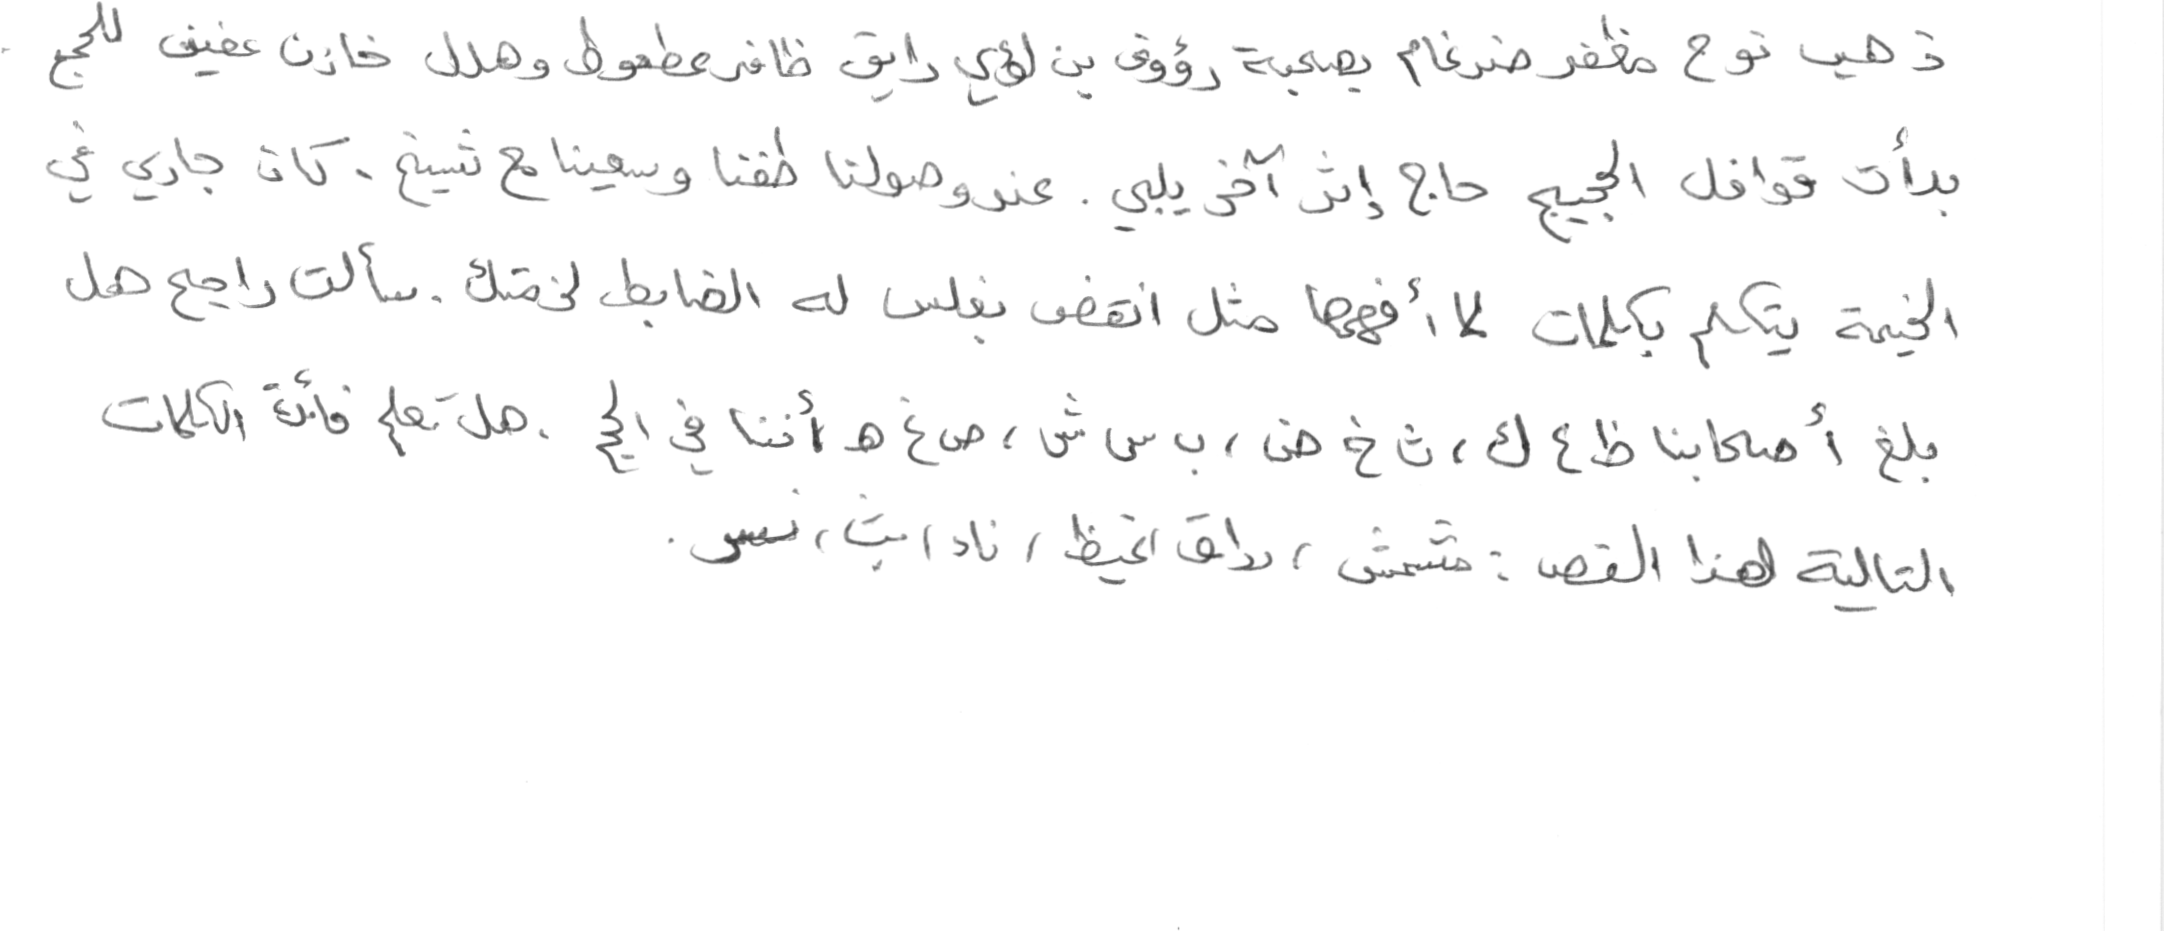 ذهب نوح مظفر ضرغام بصحبة رؤوف بن لؤي رايق ظافر عطعوط وهلال خازن عفيف للحج
بدأت قوافل الحجيج حاج إثر آخر يلبي . عند وصولنا طفنا وسعينا مع شيخ . كان جاري في
الخيمة يتكلم بكلمات لا أفهمها مثل انقض بغلس له الضابط لخمتك . سألت راجح هل
بلغ أصحابنا ظ ع ك ، ث خ ض ، ب س ش ، ص غ ه أننا في الحج . هل تعلم فائدة الكلمات
التالية لهذا القص : مشمش ، الغيظ ، ناد ، نفس .